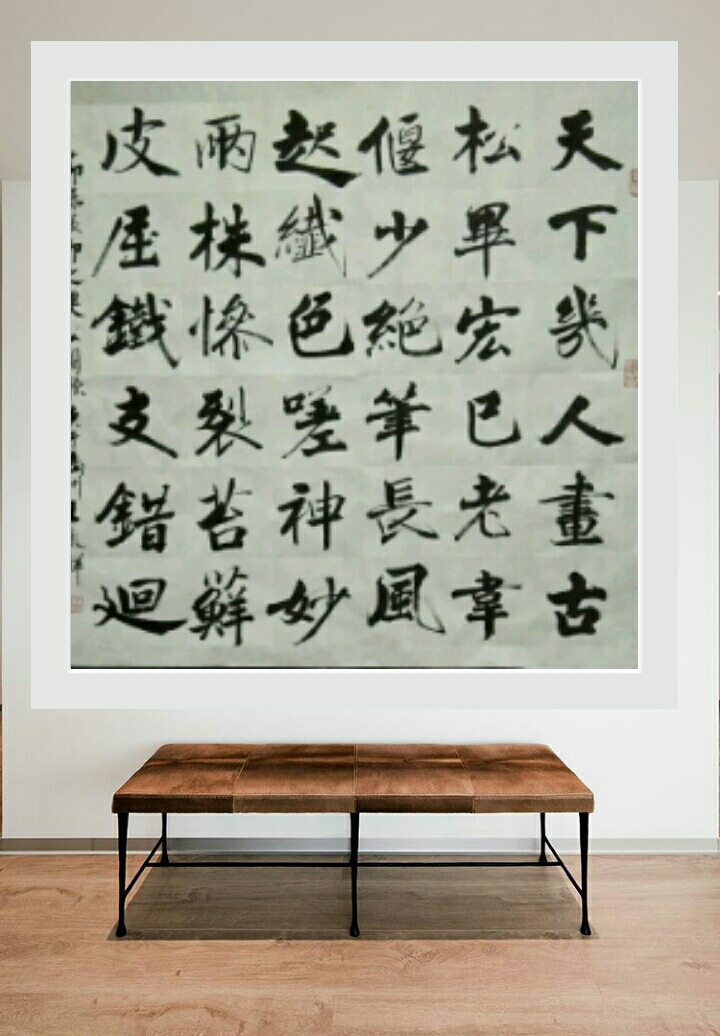 天下幾人畫古
松畢宏巳老韋
偃少絕筆長風
起纖色嗟神妙
兩株慘裂苔蘚
皮屈鐵支錯廻